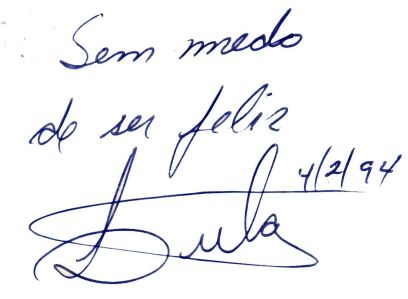 Sem medo
de ser feliz
4/2/94
Lula